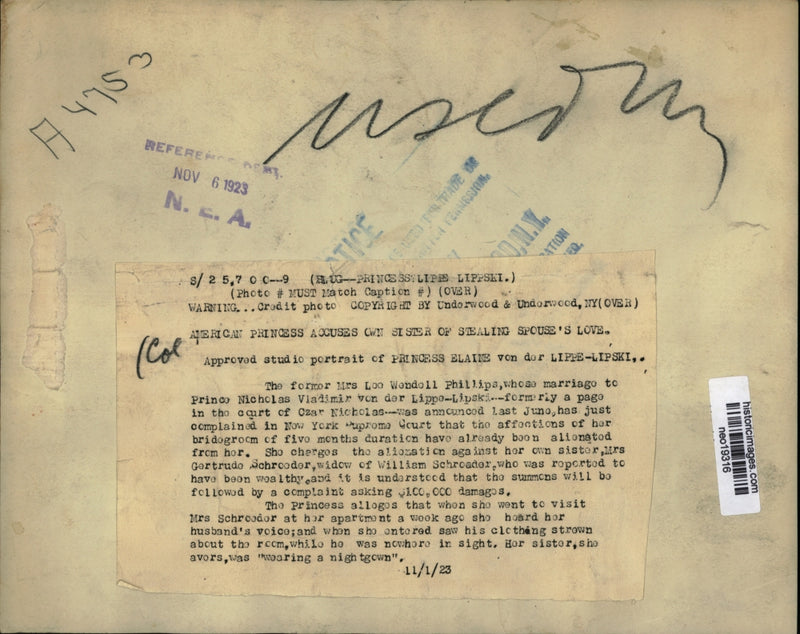 A 4753
used
REFERENCE DEPT.
NOV 6 1923
N. E. A.
NOTICE
N.Y.
S/25,700--9 (SLUG--PRINCESS LIPPE LIPPSKI.)
(Photo # MUST Match Caption #) (OVER)
WARNING...Credit photo COPYRIGHT BY Underwood & Underwood, NY(OVER)
AMERICAN PRINCESS ACCUSES OWN SISTER OF STEALING SPOUSE'S LOVE.
(Col
Approved studio portrait of PRINCESS ELAINE von der LIPPE-LIPSKI,.
The former Mrs Leo Wendell Phillips,whose marriage to
Prince Nicholas Vladimir von der Lippe-Lipski--formerly a page
in the court of Czar Nicholas--was announced last June,has just
complained in New York Supreme Court that the affections of her
bridegroom of five months duration have already been alienated
from her. She charges the alienation against her own sister,Mrs
Gertrude Schroeder,widow of William Schroeder,who was reported to
have been wealthy,and it is understood that the summons will be
followed by a complaint asking $100,000 damages.
The Princess alleges that when she went to visit
Mrs Schroeder at her apartment a week ago she heard her
husband's voice;and when she entered saw his clothing strewn
about the room,while he was nowhere in sight. Her sister,she
avers,was "wearing a nightgown".
11/1/23
historicimages.com
neo19316